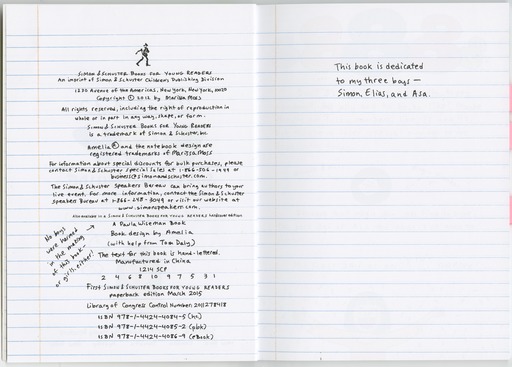 SIMON & SCHUSTER BOOKS FOR YOUNG READERS
An imprint of Simon & Schuster Children's Publishing Division
1230 Avenue of the Americas, New York, New York, 10020
Copyright © 2012 by Marissa Moss
All rights reserved, including the right of reproduction in
whole or in part in any way, shape, or form.
SIMON & SCHUSTER BOOKS FOR YOUNG READERS
is a trademark of Simon & Schuster, Inc.
Amelia® and the notebook design are
registered trademarks of Marissa Moss
For information about special discounts for bulk purchases, please
contact Simon & Schuster Special Sales at 1-866-506-1949 or
business@simonandschuster.com.
The Simon & Schuster Speakers Bureau can bring authors to your
live event. For more information, contact the Simon & Schuster
Speakers Bureau at 1-866-248-3049 or visit our website at
www.simonspeakers.com.
Also available in a SIMON & SCHUSTER BOOKS FOR YOUNG READERS hardcover edition
A Paula Wiseman Book
Book design by Amelia
(with help from Tom Daly)
The text for this book is hand-lettered.
Manufactured in China
1214 SCP
2 4 6 8 10 9 7 5 3 1
First SIMON & SCHUSTER BOOKS FOR YOUNG READERS
paperback edition March 2015
Library of Congress Control Number 2011278418
ISBN 978-1-4424-4084-5 (hc)
ISBN 978-1-4424-4085-2 (pbk)
ISBN 978-1-4424-4086-9 (eBook)
No boys
were harmed
in the making
of this book -
or girls, either!
This book is dedicated
to my three boys —
Simon, Elias, and Asa.